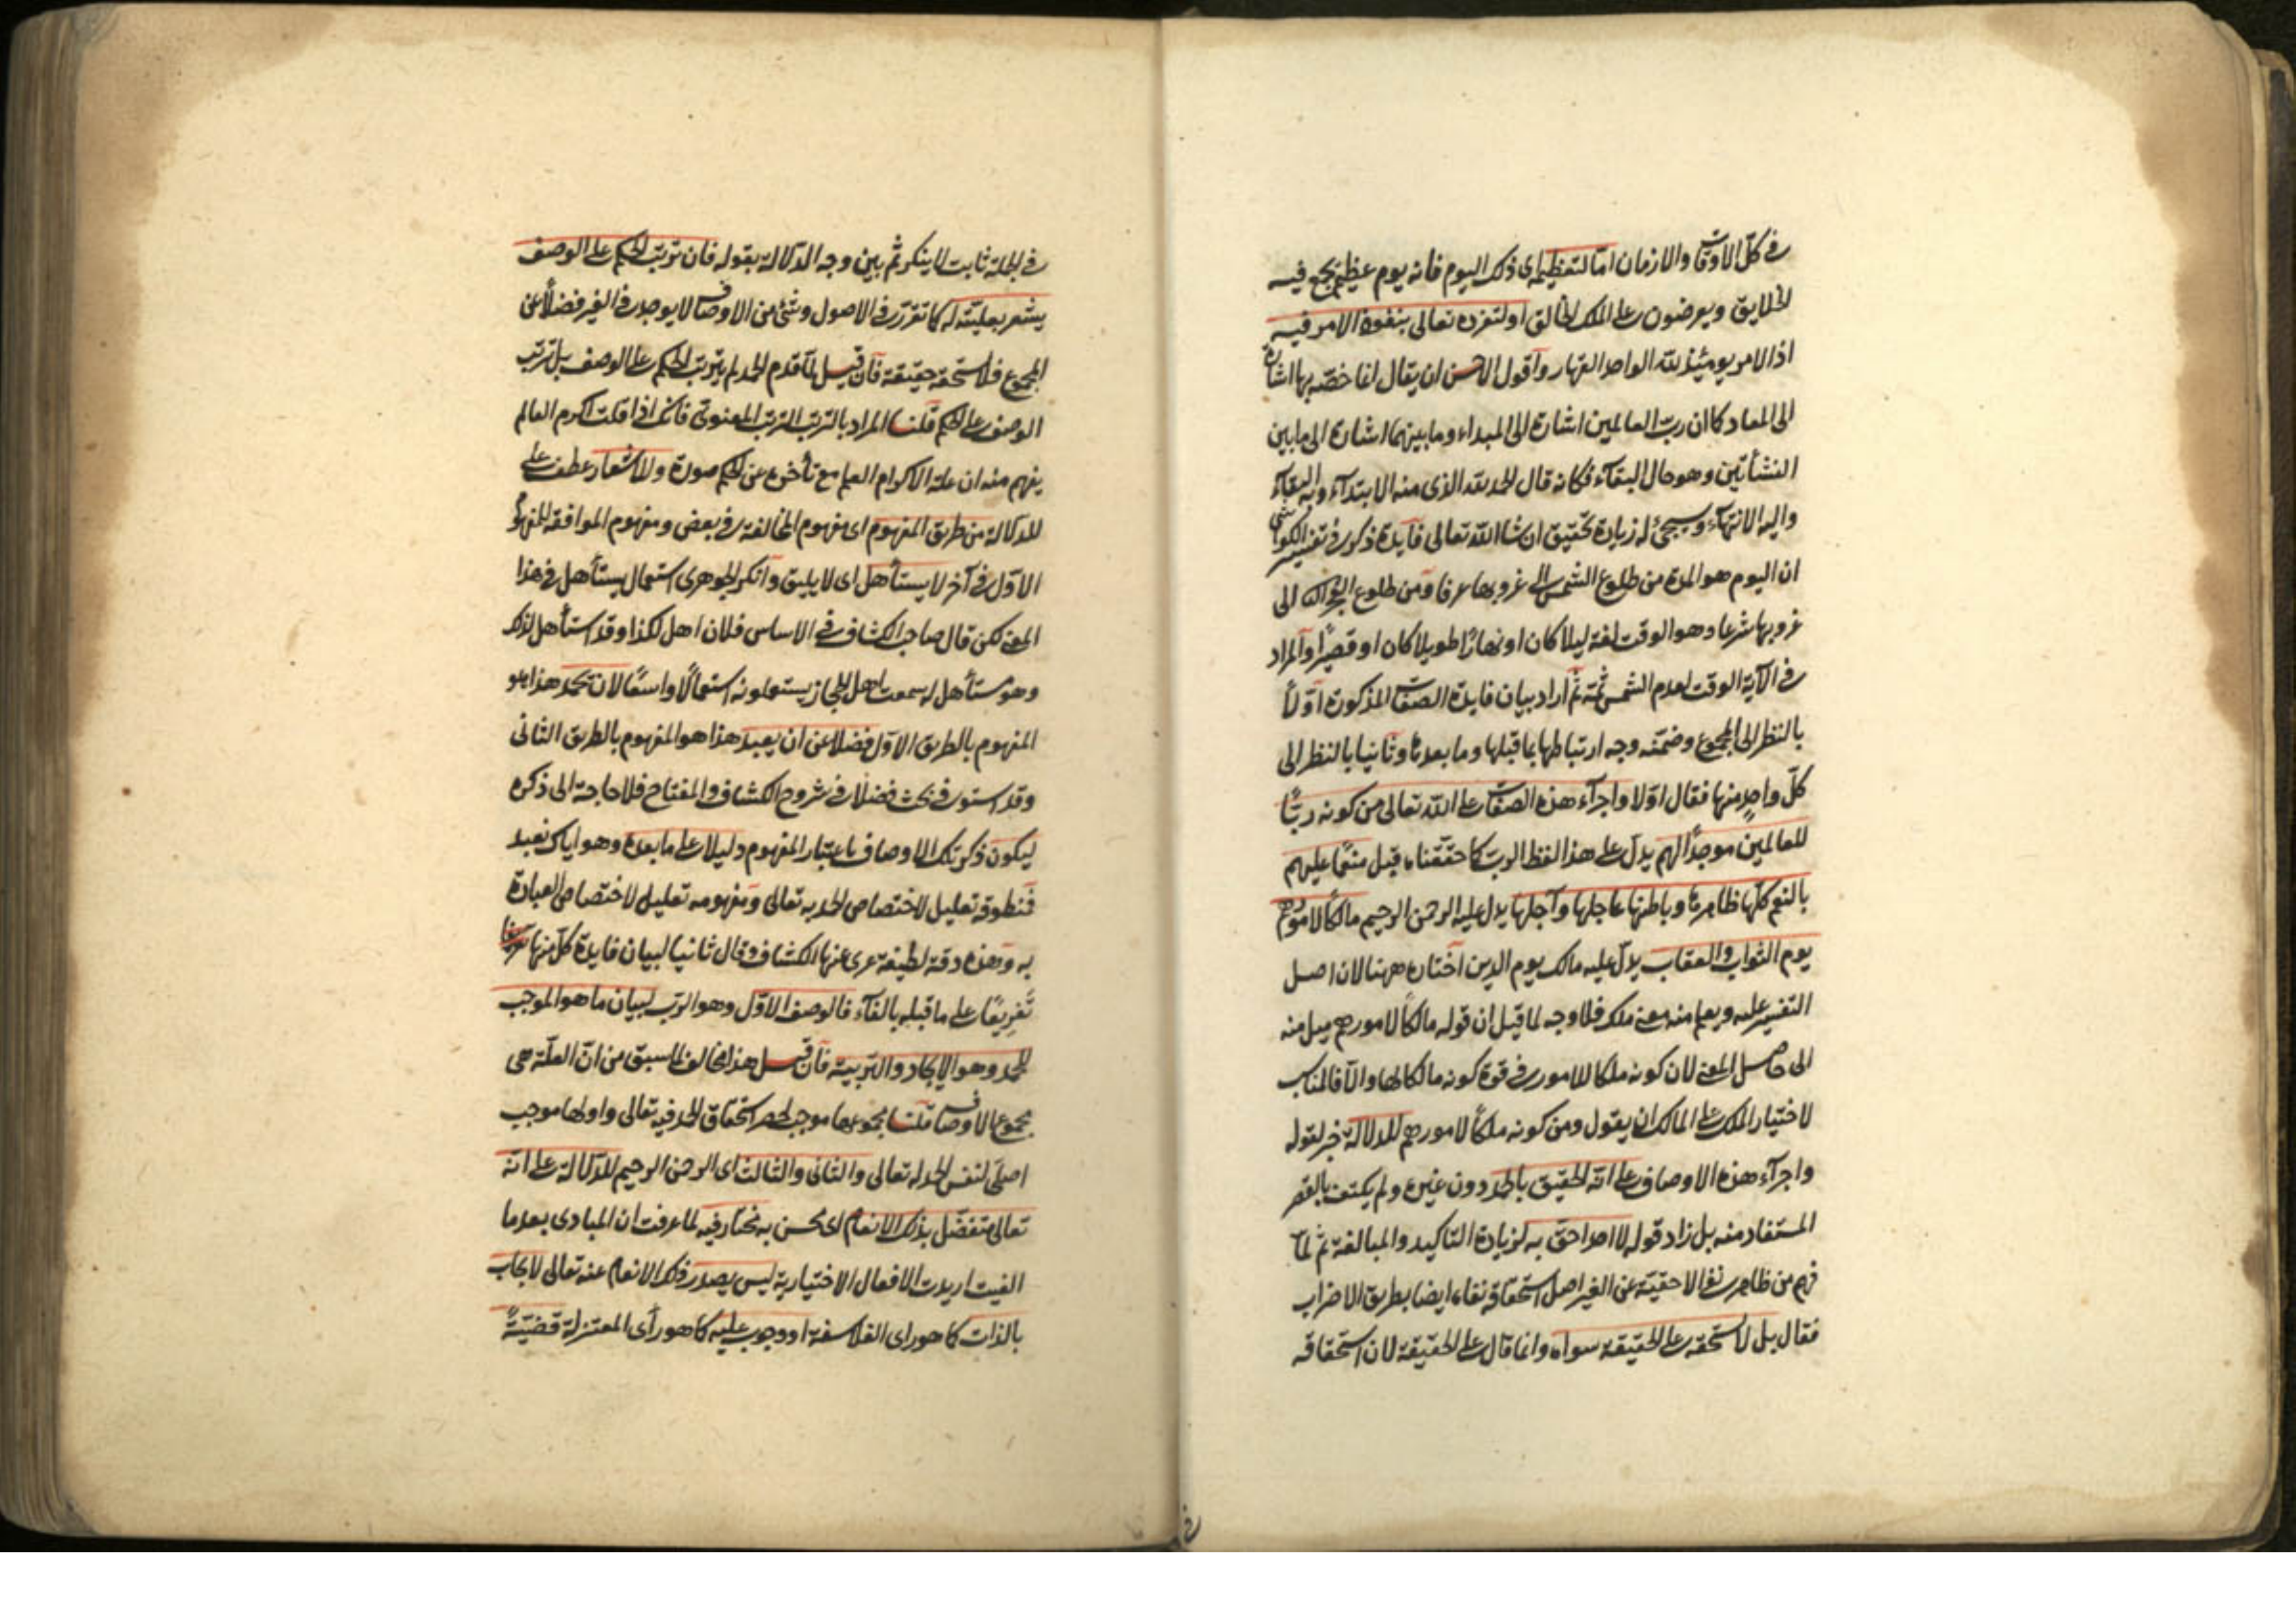 في كل الاوقات والازمان اما لتعظيم اي ذلك اليوم فانه يوم عظيم يجمع فيه
الخلايق ويعرضون على الملك الخالق او لتفرده تعالى بنفوذ الامر فيه
اذ الامر يومئذ لله الواحد القهار واقول الاحسن ان يقال انما خصه بها اشارة
الى المعاد كما ان رب العالمين اشارة الى المبداء وما بينهما اشارة الى ما بين
النشأتين وهو حال البقاء فكانه قال الحمد لله الذي منه الابتداء وبه البقاء
واليه الانتهاء وسيجئ له زيادة تحقيق ان شاالله تعالى فايدة ذكر في تفسير الكواشي
ان اليوم هو المدة من طلوع الشمس الى غروبها عرفا ومن طلوع الفجر الى
غروبها شرعا وهو الوقت لغة ليلا كان او نهارًا طويلا كان او قصيرًا والمراد
في الآية الوقت لعدم الشمس ثمة ثم اراد بيان فايدة الصفات المذكورة اوّلاً
بالنظر الى المجموع وضمنه وجه ارتباطها بما قبلها وما بعدها وثانيا بالنظر الى
كلّ واحدٍ منها فقال اولا واجراء هذه الصفات على الله تعالى من كونه ربًّا
للعالمين موجدًا لهم يدل على هذا لفظ الرب كما حققناه قبل منعمًا عليهم
بالنعم كلها ظاهرها وباطنها عاجلها وآجلها يدل عليه الرحمن الرحيم مالكًا لامورهم
يوم الثواب والعقاب يدل عليه مالك يوم الدين اختاره ههنا لان اصل
التفسير عليه ويعلم منه معنى ملك فلا وجه لما قيل ان قوله مالكًا لامورهم ميل منه
الى حاصل المعنى لان كونه ملكا للامور في قوة كونه مالكا لها والا فالمناسب
لاختيار الملك على المالك ان يقول ومن كونه ملكًا لامورهم للدلالة خبر لقوله
واجراء هذه الاوصاف على انه الحقيق بالحمد دون غيره ولم يكتف بالقصر
المستفاد منه بل زاد قوله لا احد احق به لزيادة التاكيد والمبالغة ثم لما
فهم من ظاهر نفي الاحقية عن الغير اصل استحقاقه نفاه ايضا بطريق الاضراب
فقال بل لا يستحقه على الحقيقة سواه وانما قال على الحقيقة لان استحقاقه
في الجملة ثابت لا ينكر ثم بين وجه الدلالة بقوله فان ترتب الحكم على الوصف
يشعر بعليته له كما تقرر في الاصول وشئ من الاوصاف لا يوجد في الغير فضلاً عن
المجموع فلا يستحقه حقيقة فان قيل لما قدم الحمد لم يترتب الحكم على الوصف بل ترتب
الوصف على الحكم قلنا المراد بالترتب الترتب المعنوي فانك اذا قلت اكرم العالم
يفهم منه ان علة الاكرام العلم مع تأخره عن الحكم صورة وللاشعار عطف على
للدلالة من طريق المفهوم اي مفهوم المخالفة في بعض ومفهوم الموافقة للمفهوم
الاول في آخر لا يستأهل اي لا يليق وانكر الجوهري استعمال يستأهل في هذا
المعنى لكن قال صاحب الكشاف في الاساس فلان اهل لكذا وقد استأهل لذلك
وهو مستأهل له سمعت اهل الحجاز يستعملونه استعمالاً واسعًا لان يحمد هذا هو
المفهوم بالطريق الاول فضلا عن ان يعبد هذا هو المفهوم بالطريق الثاني
وقد استوفي بحث فضلا في شروح الكشاف والمفتاح فلا حاجة الى ذكره
ليكون ذكر تلك الاوصاف باعتبار المفهوم دليلا على ما بعده وهو اياك نعبد
فمنطوقه تعليل لاختصاص الحمد به تعالى ومفهومه تعليل لاختصاص العبادة
به وهذه دقة لطيفة عرى عنها الكشاف وقال ثانيا لبيان فايدة كل منها
تفريعًا على ما قبله بالفاء فالوصف الاول وهو الرب لبيان ما هو الموجب
للحمد وهو الايجاد والتربية فان قيل هذا مخالف لما سبق من ان العلة هي
مجموع الاوصاف قلنا مجموعها موجب لحصر استحقاق الحمد فيه تعالى واولها موجب
اصلي لنفس الحمد له تعالى والثاني والثالث اي الرحمن الرحيم للدلالة على انه
تعالى متفضل بذلك الانعام اي محسن به مختار فيه لما عرفت ان المبادي بعد ما
الغيت اريدت الافعال الاختيارية ليس يصدر ذلك الانعام عنه تعالى لايجاب
بالذات كما هو راى الفلاسفة او وجوب عليه كما هو رأى المعتزلة قضيّةً